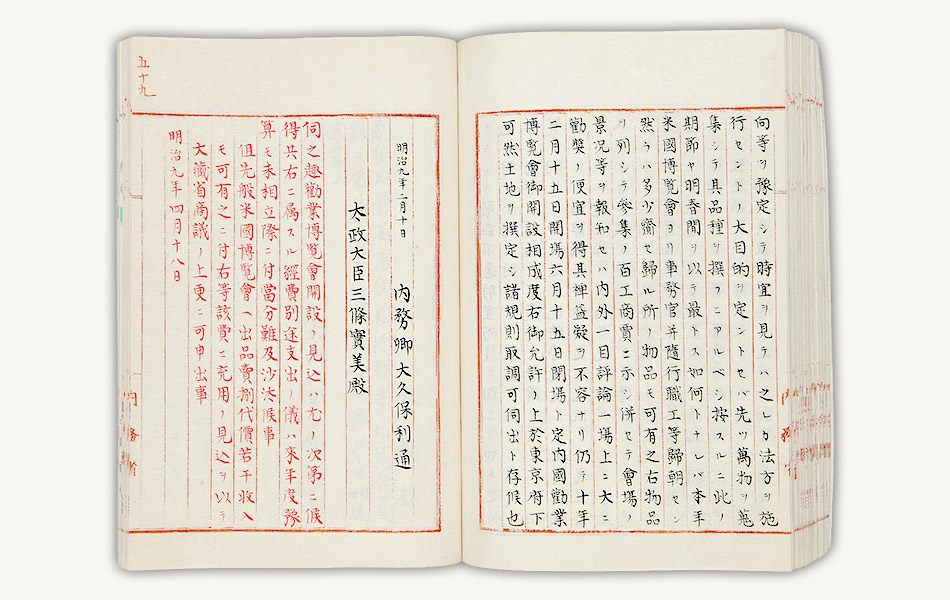 向等ヲ豫定シテ時宜ヲ見テハ之レカ法方ヲ施
行セントノ大目的ヲ定ントセバ先ツ萬物ヲ蒐
集シテ其品種ヲ撰フニアルベシ按スルニ此ノ
期節ヤ明春間ヲ以テ最トス如何トナレバ本年
米國博覧會ヨリ事務官并隨行職工等歸朝セシ
然ラハ多少齎セ歸ル所ノ物品モ可有之右物品
ヲ列シテ參集ノ百工商賣ニ示シ併セテ會場ノ
景况等ヲ報知セハ内外一目評論一場上ニ大ニ
勸奬ノ便宜ヲ得其裨益疑ヲ不容ナリ仍テ十年
二月十五日開場六月十五日閉場ト定内國勸業
博覧會御開設相成度右御允許ノ上於東京府下
可然土地ヲ撰定シ諸規則取調可伺出ト存候也
明治九年二月十日
内務卿大久保利通
太政大臣三條實美殿
伺之趣勸業博覧會開設ノ見込ハ尤ノ次第ニ候
得共右ニ属スル經費別途支出ノ儀ハ来年度豫
算モ未相立際ニ付當分難及沙汰候事
但先般米國博覧會ヘ出品賣捌代價若干收入
モ可有之ニ付右等該費ニ充用ノ見込ヲ以テ
大藏省商議ノ上更ニ可申出事
明治九年四月十八日
五十九
内務省